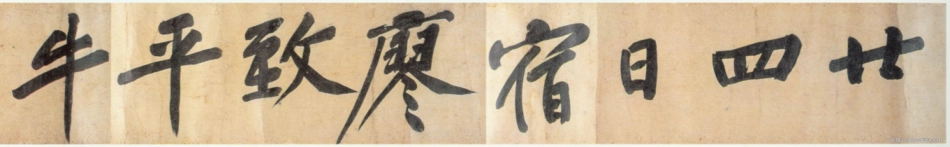 廿四日宿廖致平牛